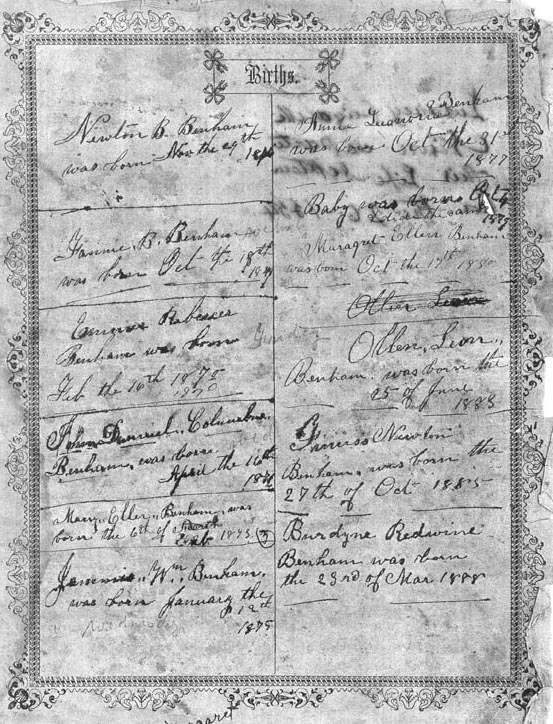 Births.
Newton B. Benham
was born Nov the 29th
Fannie. B. Benham
was born Oct the 18th
Emma Rebecca
Benham was born
Feb the 16th 1870
1870
John Samuel, Columbus,
Benham, was born
April the 16th
Mary, Ellen, Benham, was
born the 6th of March
1873
Wm, Benham,
was born January the
12th
1875
Anna Benham
was born Oct the 31st
1877
Baby was born Oct
died the same
1879
Maragret Ellen Benham
was born Oct the 17th 1880
Ollen, Leon,
Benham, was born the
25 of June
1883
Newton
Benham, was born the
27th of Oct 1885
Burdyne Redwine
Benham was born
the 23rd of Mar 1888